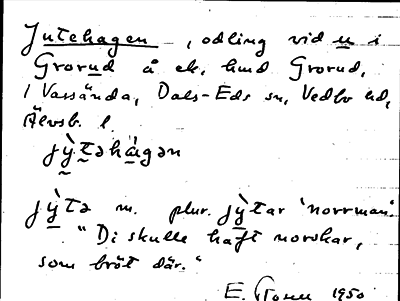 Jutehagen, odling vid u i
Grorud å ek. bind Grorud,
1 Vassända, Dals-Eds sn, Vedbo hd,
Älvsb. l.
jỳtəhàgən
jỳtə m. plur. jỳtar 'norrman'.
"Di skulle haft norskar,
som bröt där."
E. 1950